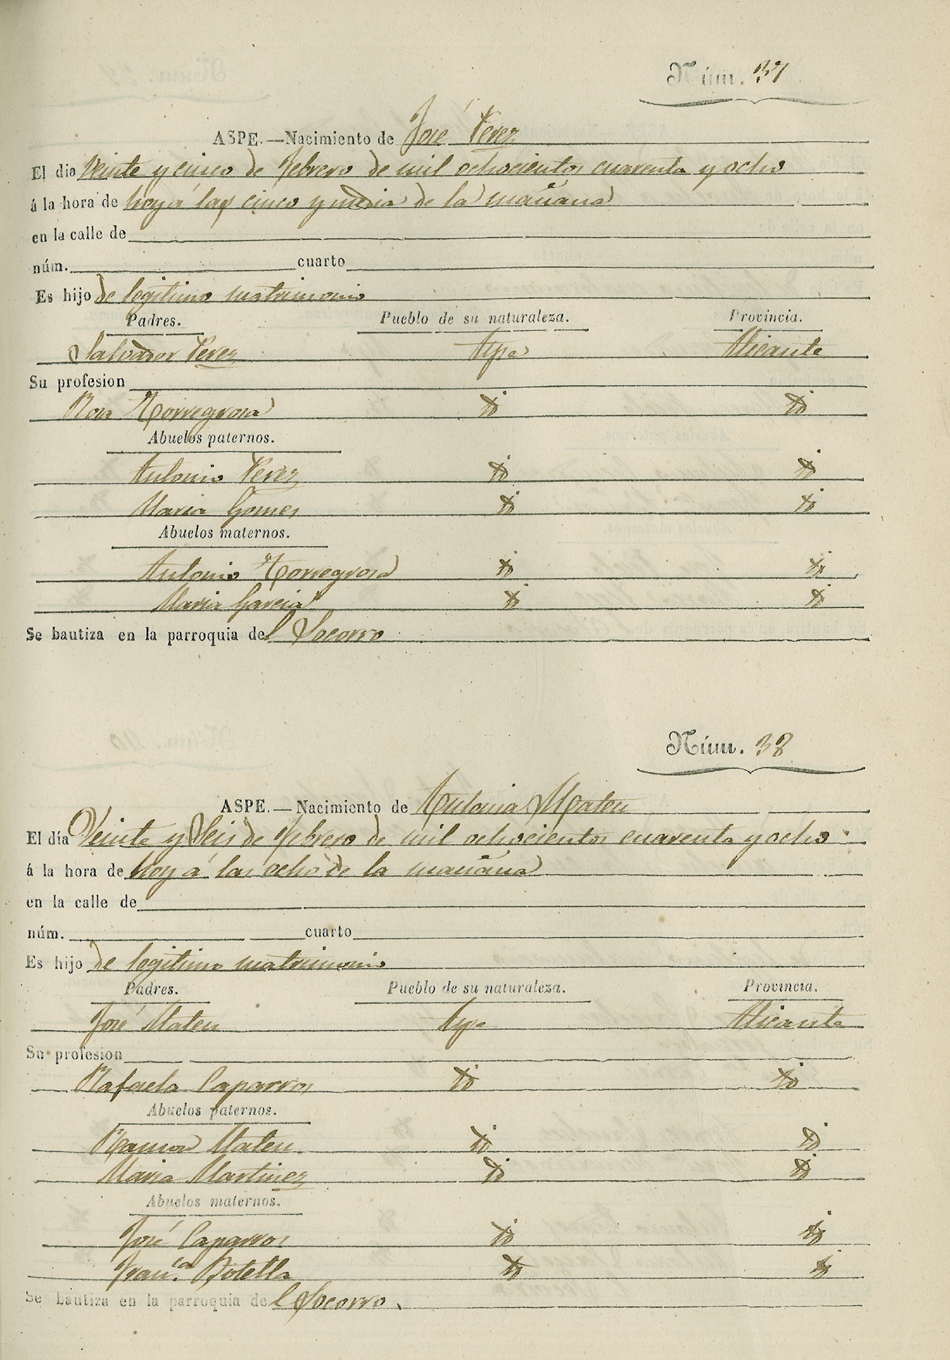 Núm. 37
ASPE.—Nacimiento de José Perez
El dia Veinte y cinco de febrero de mil ochocientos cuarenta y ocho
á la hora de hoy á las cinco y media de la mañana
en la calle de
núm. cuarto
Es hijo de legitimo matrimonio
Padres. Pueblo de su naturaleza. Provincia.
Salvador Perez Aspe Alicante
Su profesion
Rosa Torregrosa id id
Abuelos paternos.
Antonio Perez id id
Maria Gomez id id
Abuelos maternos.
Antonio Torregrosa id id
Maria Garcia id id
Se bautiza en la parroquia del Socorro
Núm. 38
ASPE.—Nacimiento de Antonia Mateu
El día Veinte y Seis de febrero de mil ochocientos cuarenta y ocho
á la hora de hoy á las ocho de la mañana
en la calle de
núm. cuarto
Es hijo de legitimo matrimonio
Padres. Pueblo de su naturaleza. Provincia.
José Mateu Aspe Alicante
Su profesion
Rafaela Caparros id id
Abuelos paternos.
Ramon Mateu id id
Maria Martinez id id
Abuelos maternos.
José Caparros id id
Fran.ca Botella id id
Se bautiza en la parroquia del Socorro.